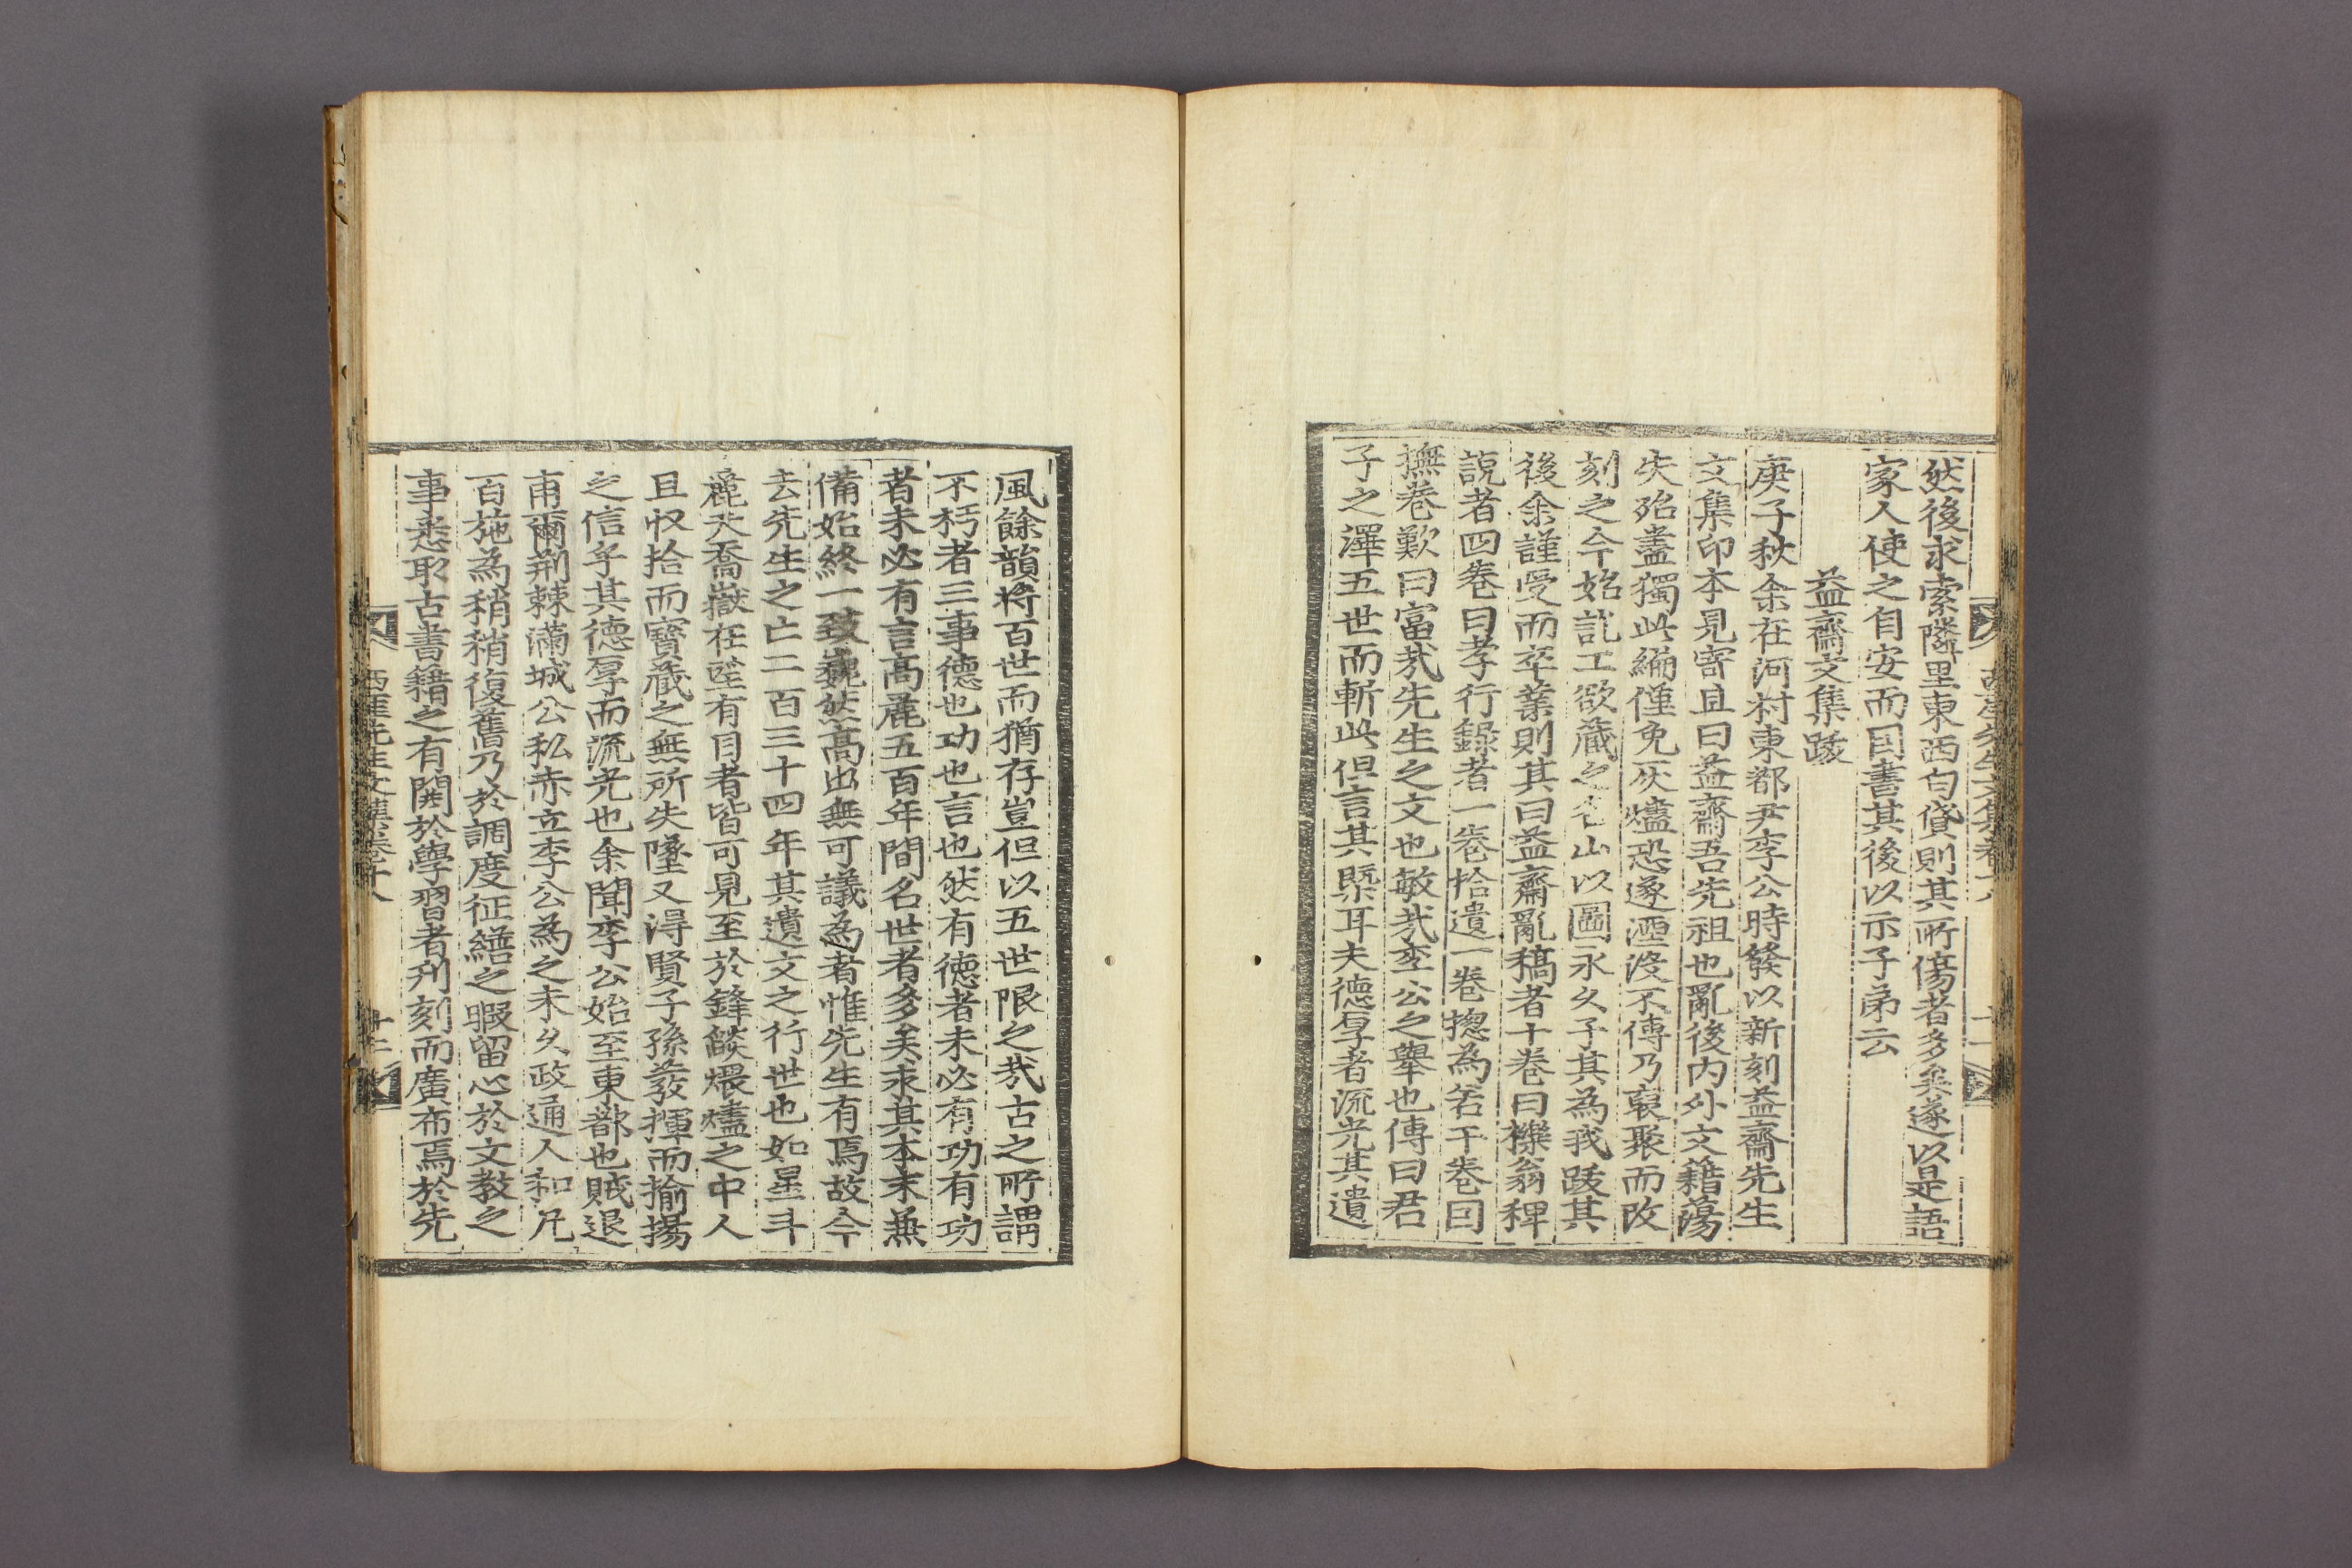 然後求索隣里東西匄貸則其所傷者多矣遂以是語
家人使之自安而因書其後以示子弟云
益齋文集跋
庚子秋余在河村東都尹李公時發以新刻益齋先生
文集印本見寄且曰益齋吾先祖也亂後內外文籍蕩
失殆盡獨此編僅免灰燼恐遂湮沒不傳乃裒聚而改
刻之今始訖工欲藏之名山以圖永久子其為我跋其
後余謹受而卒業則其曰益齋亂稿者十卷曰櫟翁稗
說者四卷曰孝行錄者一卷拾遺一卷揔為若干卷因
撫卷歎曰富㢤先生之文也敏㢤李公之舉也傳曰君
子之澤五世而斬此但言其槩耳夫德厚者流光其遺
風餘韻將百世而猶存豈但以五世限之㢤古之所謂
不朽者三事德也功也言也然有德者未必有功有功
者未必有言高麗五百年間名世者多矣求其本末兼
備始終一致巍然高出無可議為者惟先生有焉故今
去先生之亡二百三十四年其遺文之行世也如星斗
麗天喬嶽在望有目者皆可見至於鋒燄煨燼之中人
且収拾而寶藏之無所失墜又得賢子孫發揮而揄揚
之信乎其德厚而流光也余聞李公始至東都也賊退
甫爾荊棘滿城公私赤立李公為之未久政通人和凡
百施為稍稍復舊乃於調度征繕之暇留心於文教之
事悉取古書籍之有関於學習者刋刻而廣布焉於先
西厓先生文集卷十八 十二